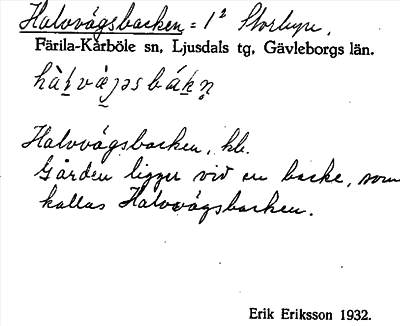 Halvvägsbacken = 1² Storbyn.
Färila-Kårböle sn, Ljusdals tg, Gävleborgs län.
Halvvägsbacken, hh.
Gården ligger vid en backe, som
kallas Halvvägsbacken.
Erik Eriksson 1932.